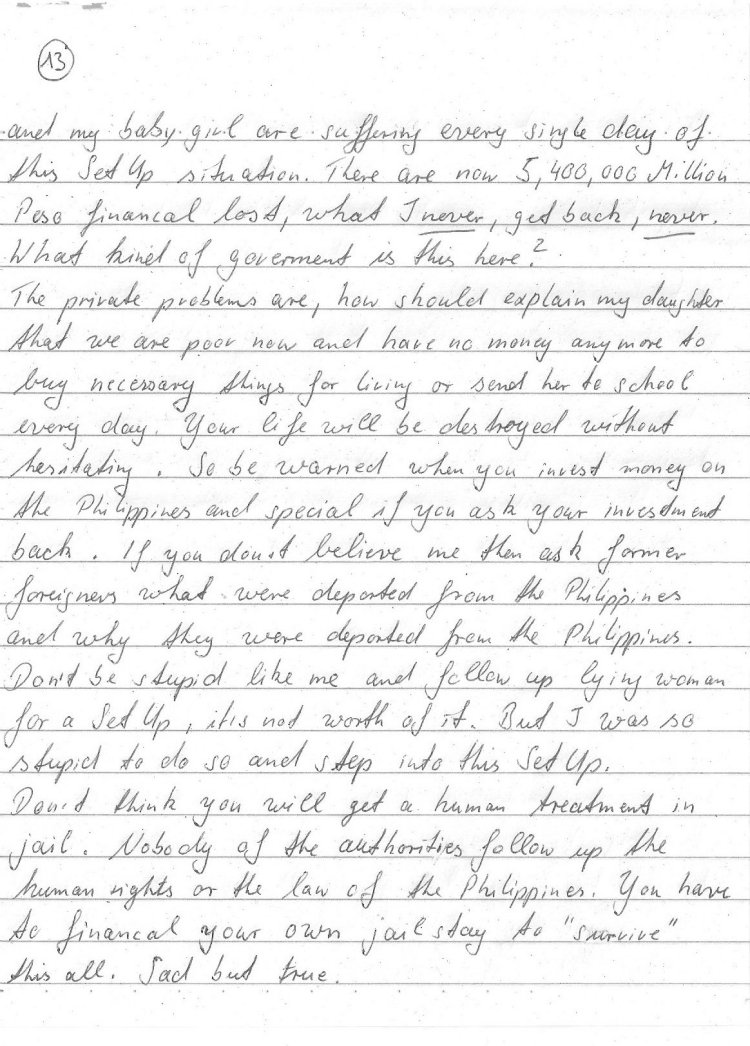 13
and my baby girl are suffering every single day of
this Set Up situation. There are now 5,400,000 Million
Peso financal lost, what I never, get back, never.
What kind of goverment is this here?
The private problems are, how should explain my daughter
that we are poor now and have no money anymore to
buy necessary things for living or send her to school
every day. Your life will be destroyed without
hesitating. So be warned when you invest money on
the Philippines and special if you ask your investment
back. If you don't believe me then ask former
foreigners what were deported from the Philippines
and why they were deported from the Philippines.
Don't be stupid like me and follow up lying woman
for a Set Up, it is not worth of it. But I was so
stupid to do so and step into this Set Up.
Don't think you will get a human treatment in
jail. Nobody of the authorities follow up the
human rights or the law of the Philippines. You have
to financal your own jail stay to "survive"
this all. Sad but true.